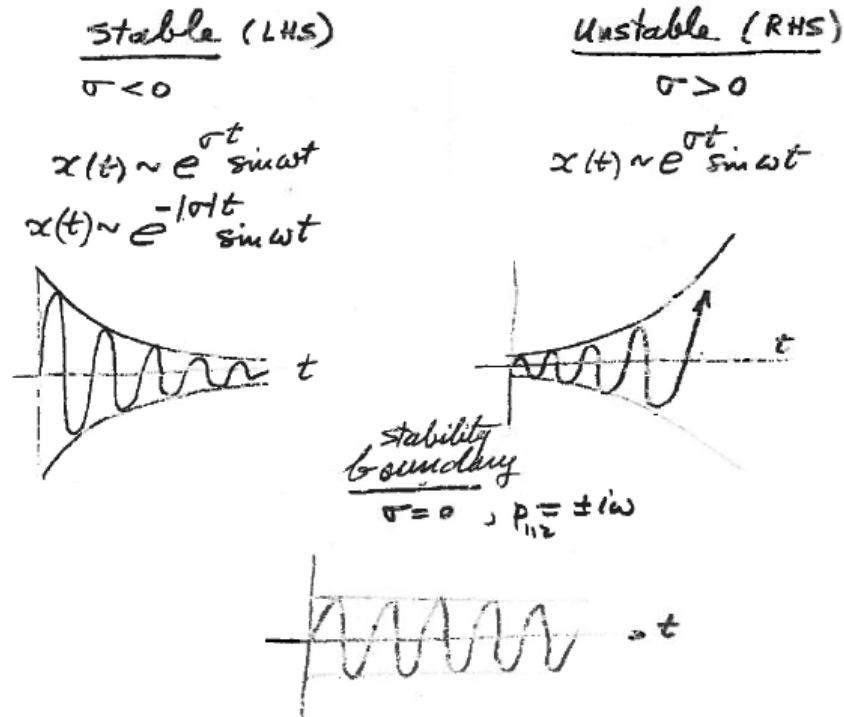 stable (LHS)
σ < 0
x(t) ~ e^{σt} sin ωt
x(t) ~ e^{-|σ|t} sin ωt
t
Unstable (RHS)
σ > 0
x(t) ~ e^{σt} sin ωt
t
stability
boundary
σ = 0 , p_{1,2} = ± iω
t